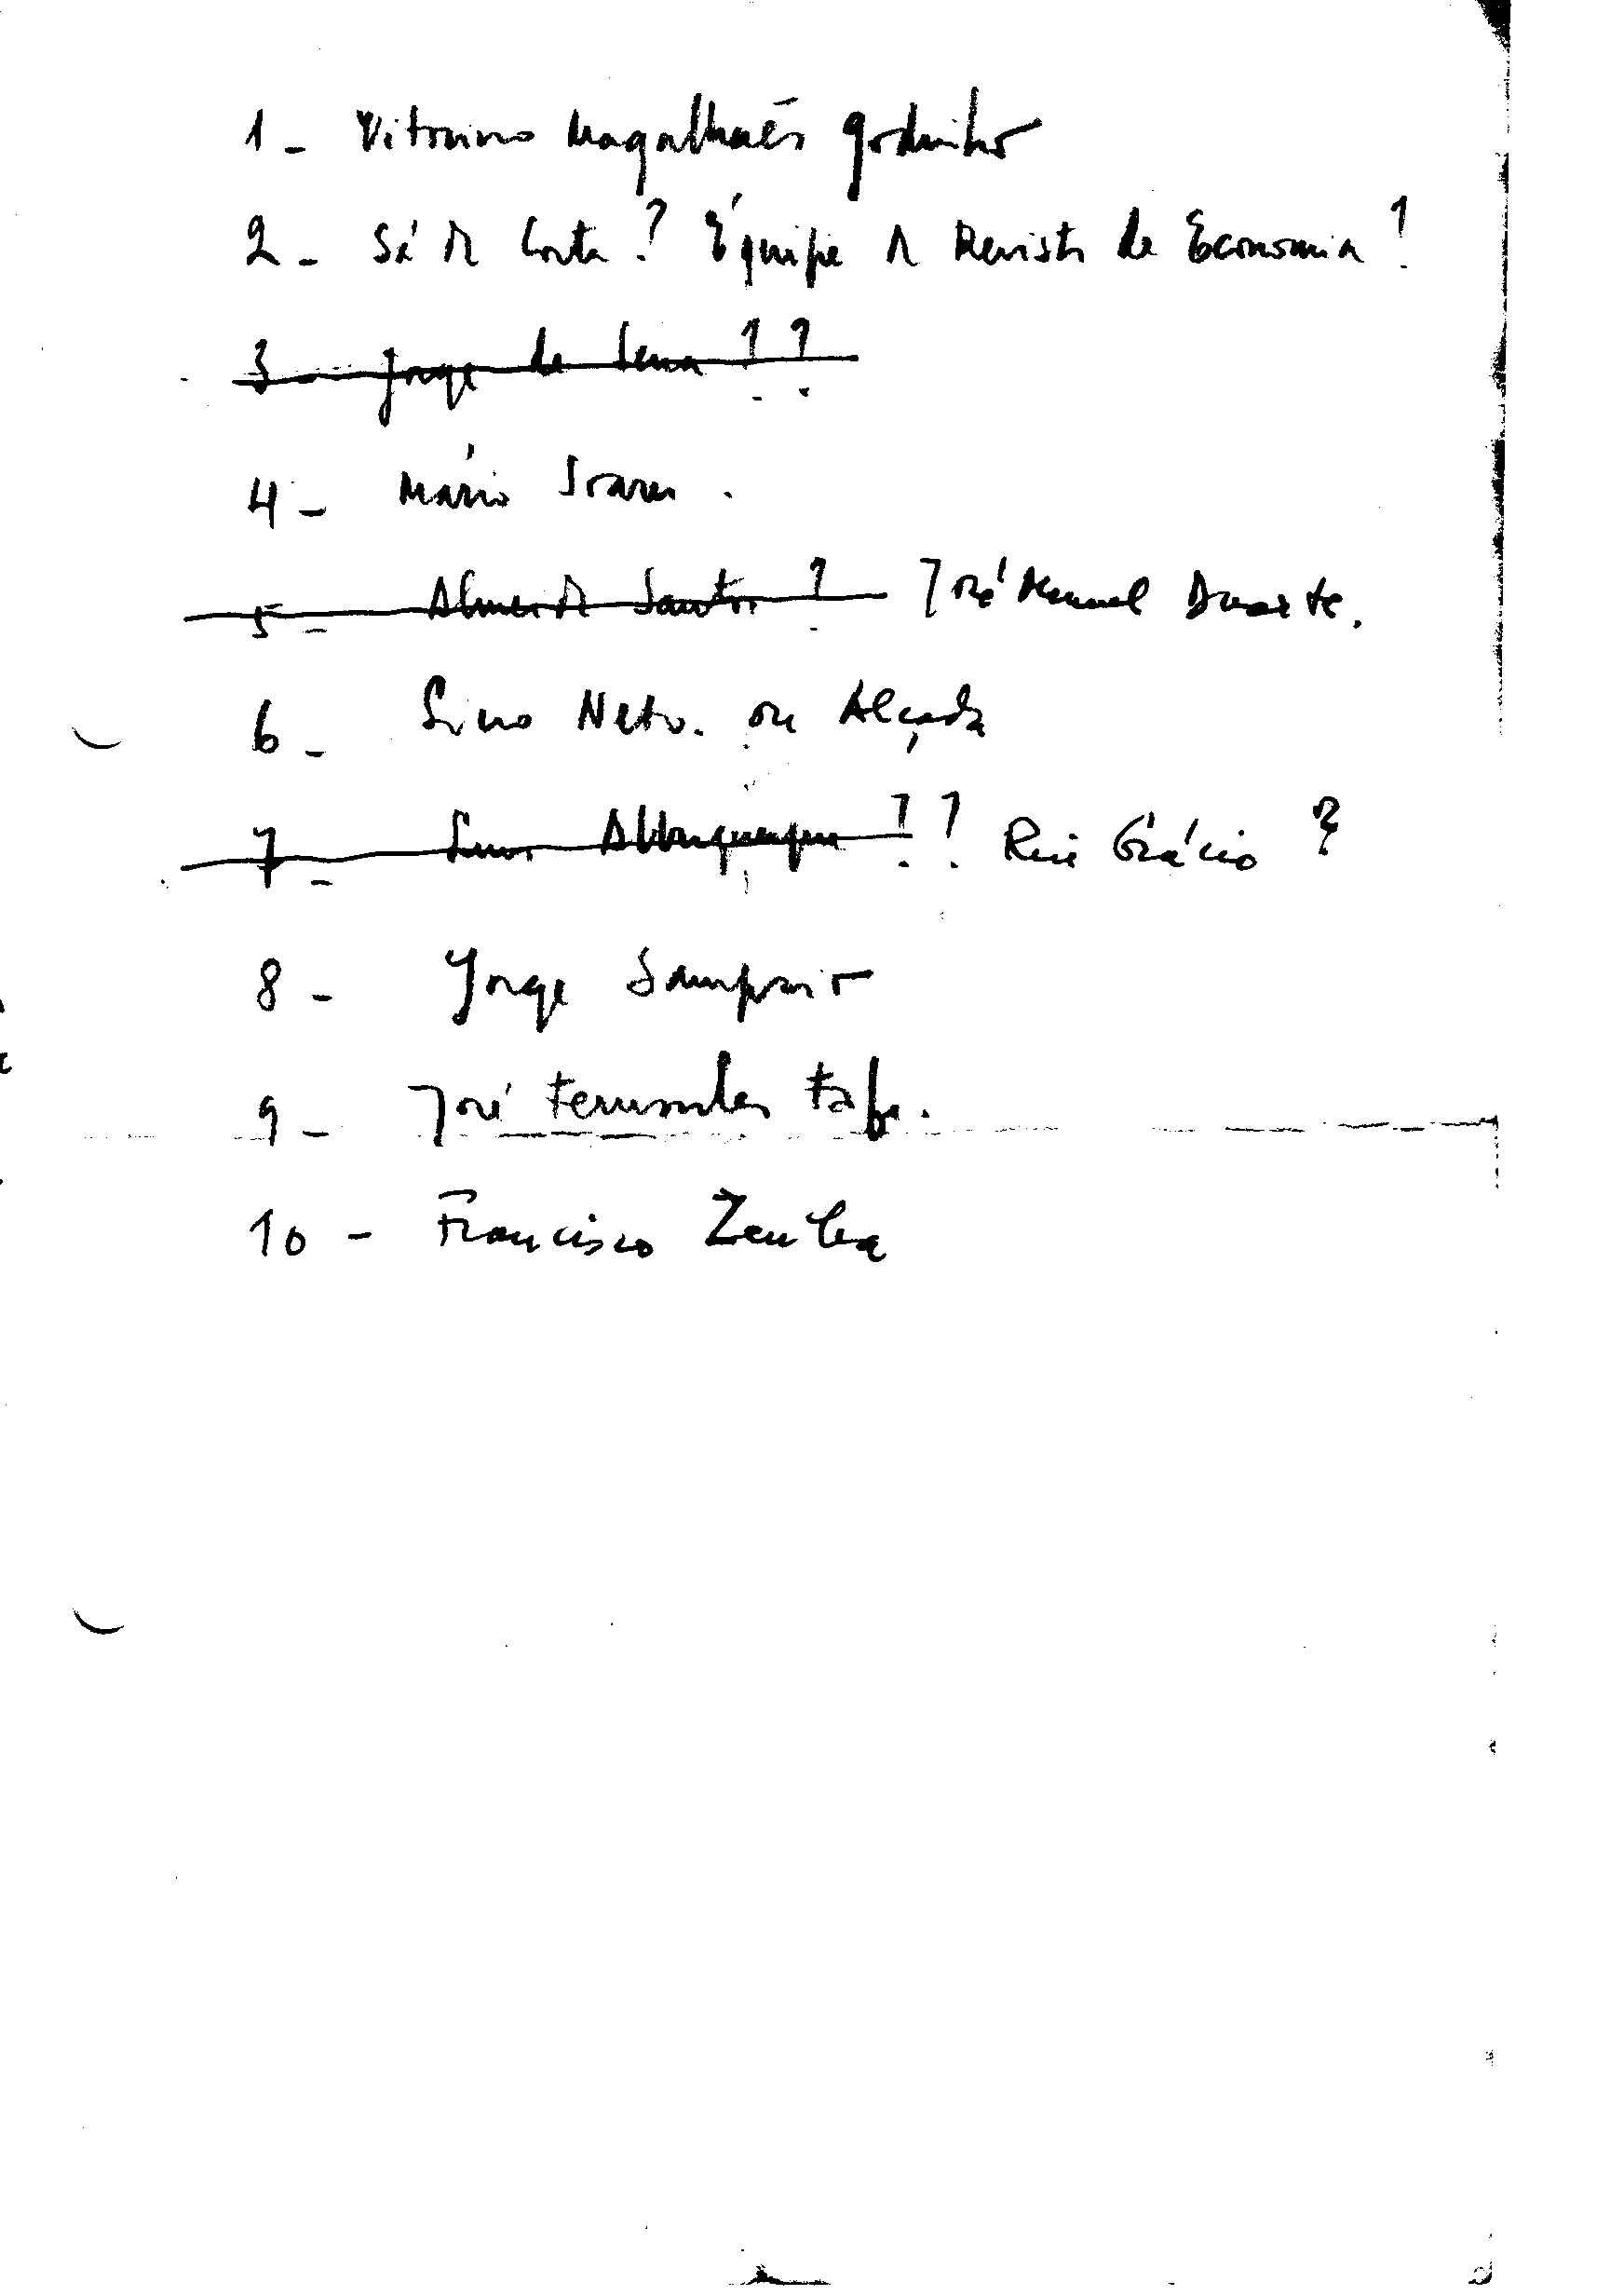 1 - Vitorino Magalhães Godinho
2 - Sá da Costa? Équipe da Revista de Economia?
3 - Jorge de Sena ??
4 - Mário Soares.
5 - Almeida Santos ? José Manuel Duarte.
6 - Lino Neto. ou Alçada
7 - Luis Albuquerque ?? Rui Grácio ?
8 - Jorge Sampaio
9 - José Fernandes Fafe.
10 - Francisco Zenha